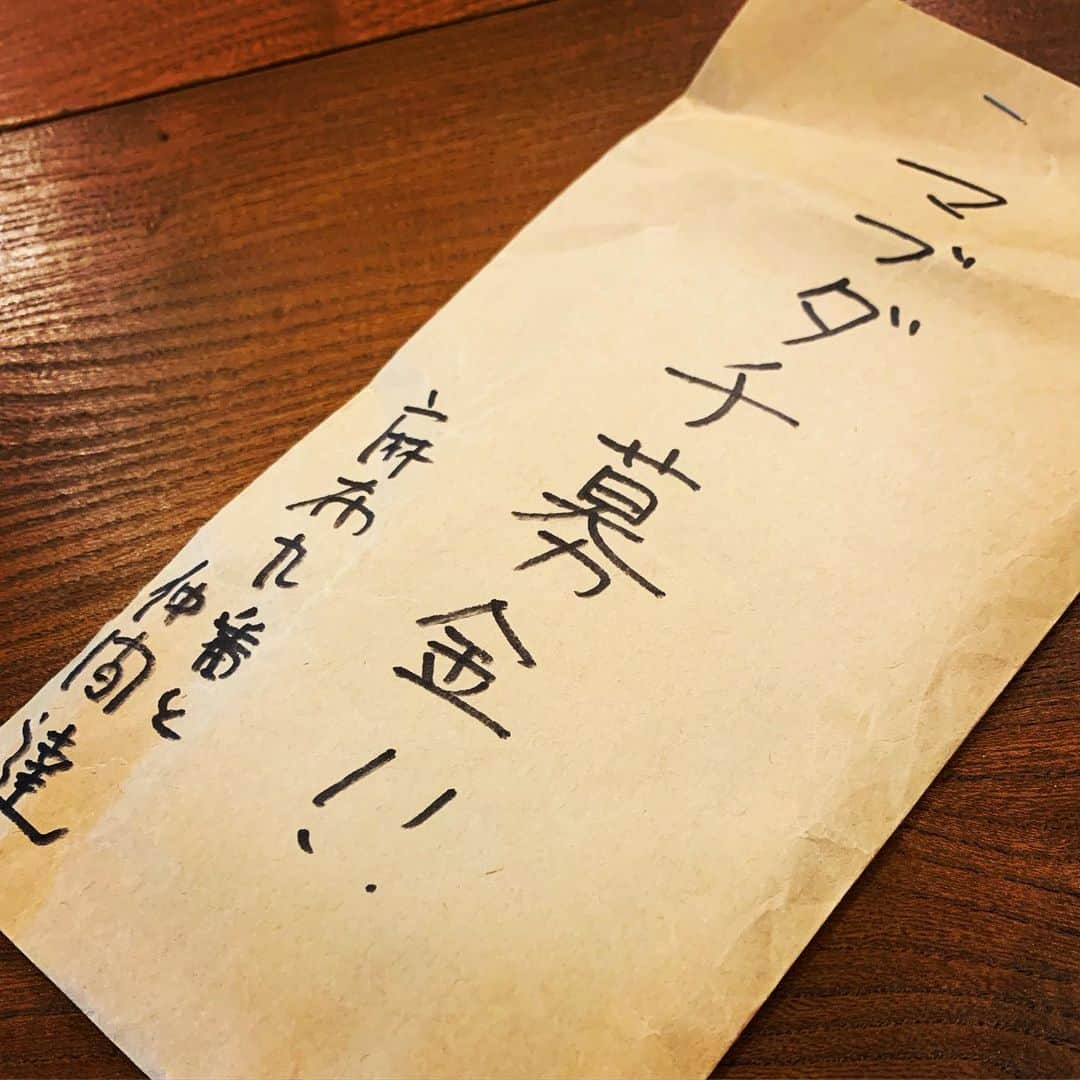 マブダチ募金!!
麻布九番と
仲間達